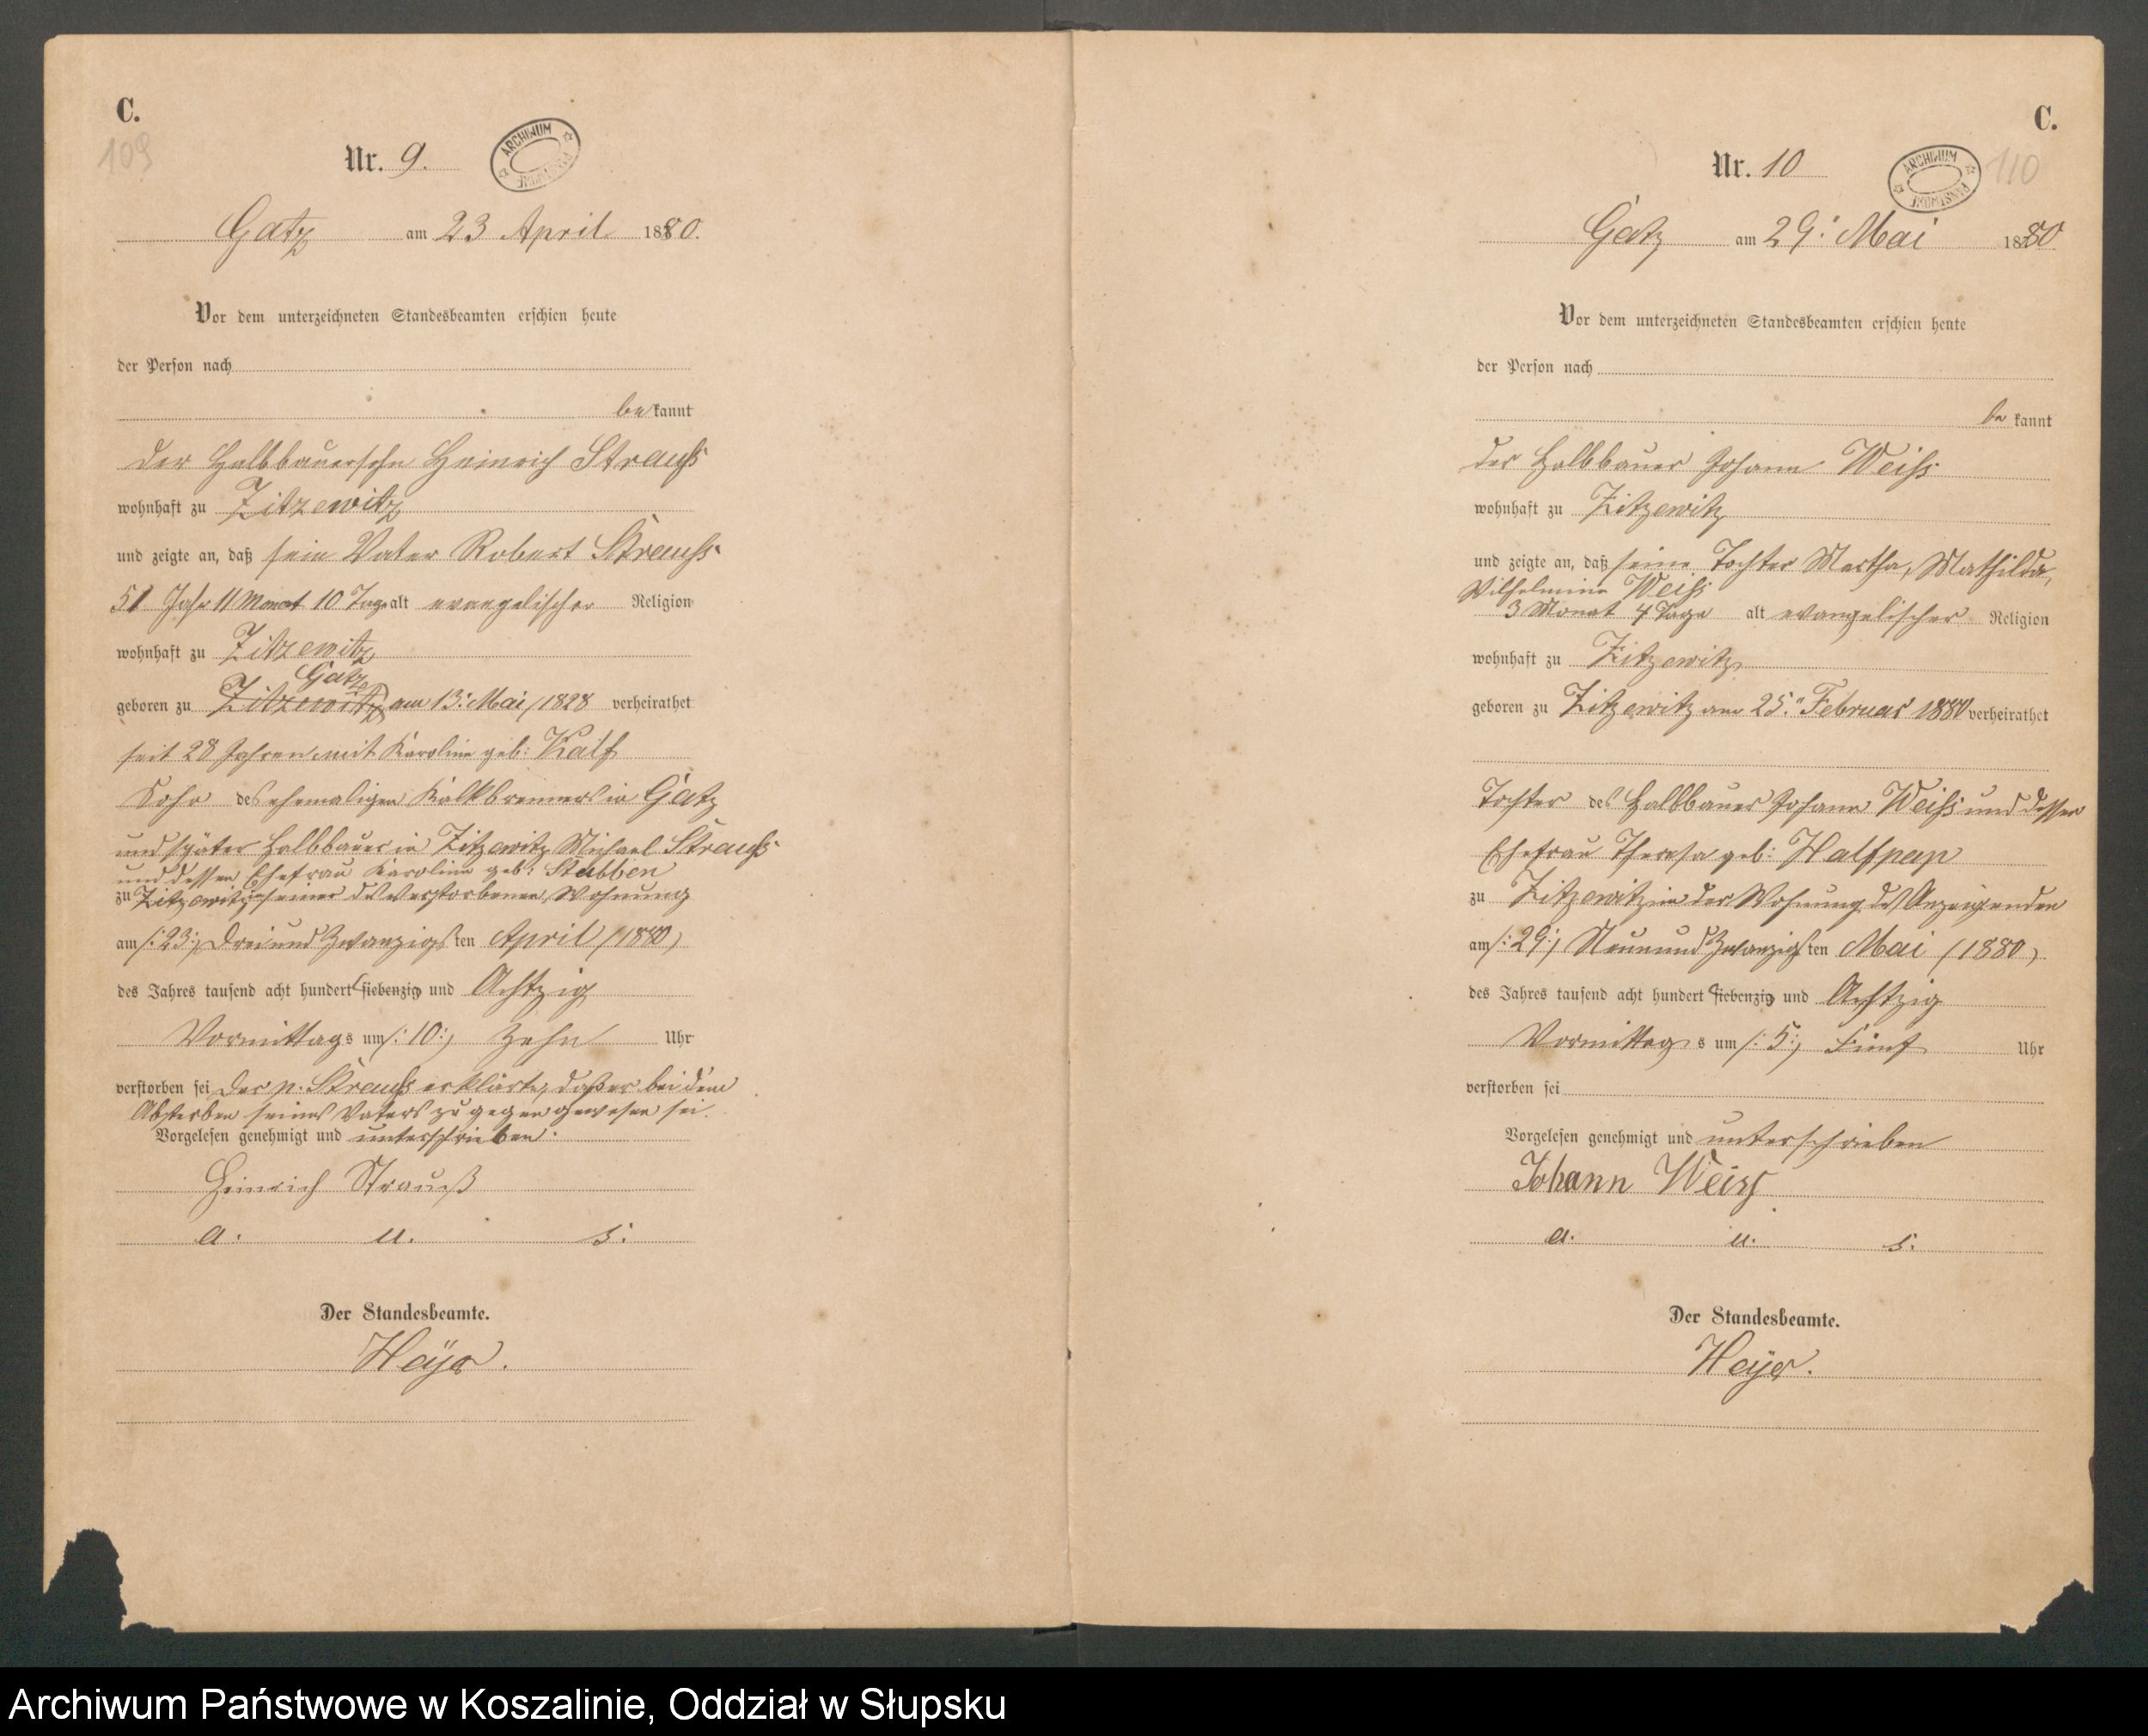 C.
109
Nr. 9.
ARCHIWUM PAŃSTWOWE
Gatz am 23 April 1880.
Vor dem unterzeichneten Standesbeamten erschien heute
der Person nach
be kannt
der Halbbauersohn Heinrich Strauſs
wohnhaft zu Zitzewitz
und zeigte an, daß sein Vater Robert Strauſs
51 Jahr 11 Monat 10 Tage alt evangelischer Religion
wohnhaft zu Zitzewitz
Gatz
geboren zu Zitzewitz am 13. Mai 1828 verheirathet
seit 28 Jahren mit Karoline geb: Kalf
Sohn des ehemaligen Kalkbrenners in Gatz
und später Halbbauer in Zitzewitz Michael Strauſs
und dessen Ehefrau Karoline geb. Stubben
zu Zitzewitz in seiner des Verstorbenen Wohnung
am /:23:/ Drei und Zwanzigsten April /1880/
des Jahres tausend acht hundert siebenzig und Achtzig
Vormittags um /:10:/ Zehn Uhr
verstorben sei Der p. Strauſs erklärte, daß er bei dem
Absterben seines Vaters zugegen gewesen sei.
Vorgelesen genehmigt und unterschrieben.
Heinrich Strauß
a. u. s.
Der Standesbeamte.
Heyer.
C.
110
Nr. 10
ARCHIWUM PAŃSTWOWE
Gatz am 29. Mai 1880
Vor dem unterzeichneten Standesbeamten erschien heute
der Person nach
be kannt
der Halbbauer Johann Weiſs
wohnhaft zu Zitzewitz
und zeigte an, daß seine Tochter Martha, Mathilda,
Wilhelmine Weiſs
3 Monat 4 Tage alt evangelischer Religion
wohnhaft zu Zitzewitz
geboren zu Zitzewitz am 25. Februar 1880 verheirathet
Tochter des Halbbauer Johann Weiſs und dessen
Ehefrau Theresa geb: Halfpap
zu Zitzewitz in der Wohnung des Anzeigenden
am /:29:/ Neun und Zwanzigsten Mai /1880/
des Jahres tausend acht hundert siebenzig und Achtzig
Vormittags um /:5:/ Fünf Uhr
verstorben sei
Vorgelesen genehmigt und unterschrieben
Johann Weiss
a. u. s.
Der Standesbeamte.
Heyer.
Archiwum Państwowe w Koszalinie, Oddział w Słupsku